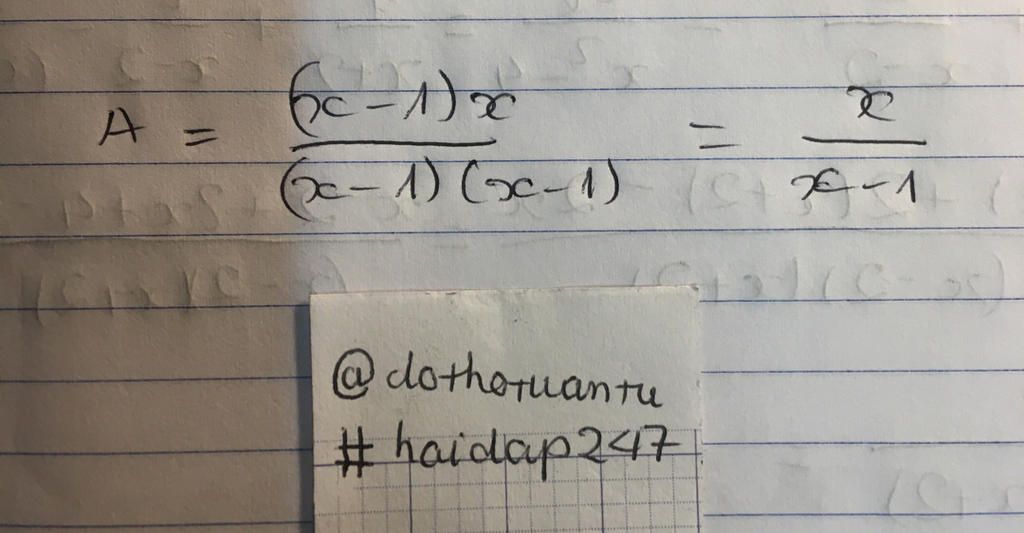 A = (x-1)x / (x-1)(x-1) = x / x-1
@dothotuantu
#haidap247